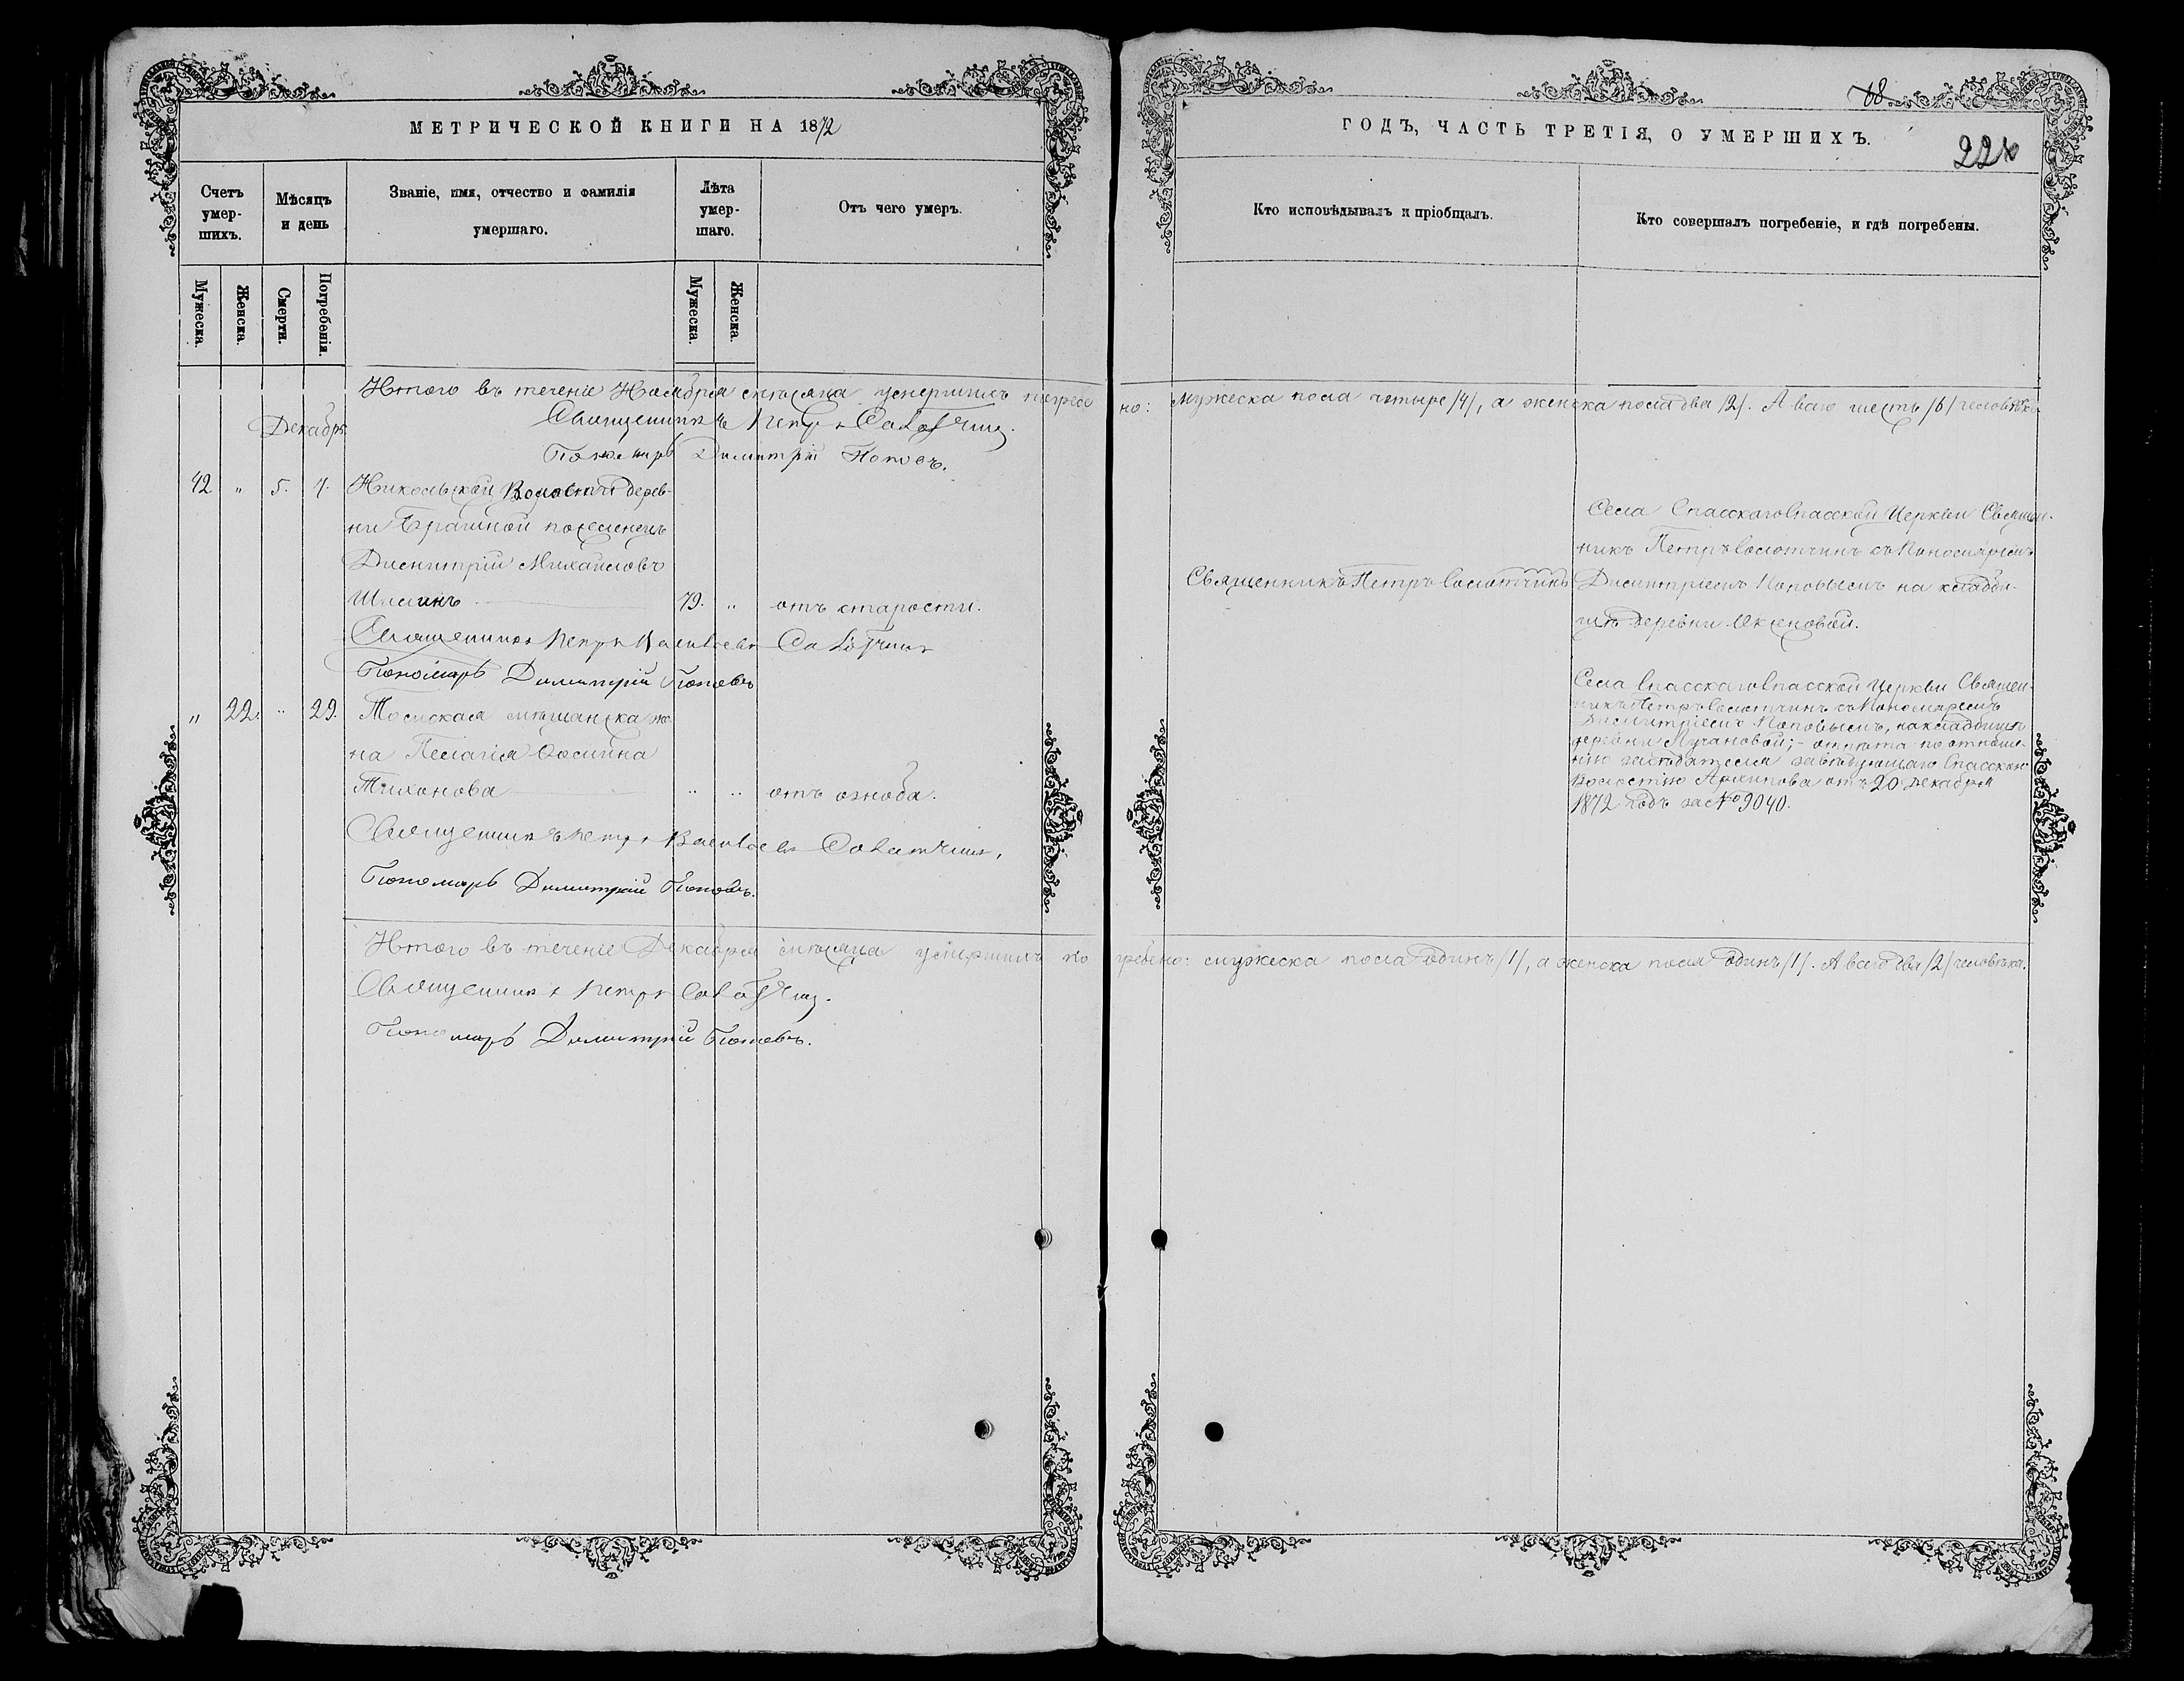 МЕТРИЧЕСКОЙ КНИГИ НА 1872
Счетъ умер-шихъ.
Мѣсяцъ и день
Званіе, имя, отчество и фамилія умершаго.
Лѣта умер-шаго.
Отъ чего умеръ.
Мужеска.
Женска.
Смерти.
Погребенія.
Мужеска.
Женска.
Итого въ теченіе Ноября мѣсяца умершихъ погребе
Священникъ Петръ
Декабрь
Пономарь Димитрій Поповъ.
42 " 5. 7. Никольской Волости дерев-
ни Брагиной поселенецъ
Димитрій Михайловъ
79. " отъ старости.
Священникъ Петръ Васильевъ
Пономарь Димитрій Поповъ
" 22. " 29. Томская мѣщанска же-
на Пелагія
Тихонова " " отъ озноба.
Священникъ Петръ Васильевъ
Пономарь Димитрій Поповъ.
Итого въ теченіе Декабря мѣсяца умершихъ по
Священникъ Петръ
Пономарь Димитрій Поповъ.
68
ГОДЪ, ЧАСТЬ ТРЕТІЯ, О УМЕРШИХЪ.
Кто исповѣдывалъ и пріобщалъ.
Кто совершалъ погребеніе, и гдѣ погребены.
но: мужеска пола четыре /4/, а женска пола два /2/. А всего шесть /6/ человѣкъ
Села Спасскаго Спасской Церкви Священ-
никъ Петръ Соловчинъ съ Пономаремъ
Священникъ Петръ Димитріемъ Поповымъ на кладби-
щѣ деревни Аксеновой.
Села Спасскаго Спасской Церкви Священ-
никъ Петръ съ Пономаремъ
Димитріемъ Поповымъ, на кладбищѣ
деревни Лучановой; - отпѣта по отноше-
нію засѣдателя завѣдующаго Спасскою
Волостію Архипова отъ 20 Декабря
1872 года за № 9040.
гребено: мужеска пола одинъ /1/, а женска пола одинъ /1/. А всего два /2/ человѣка.